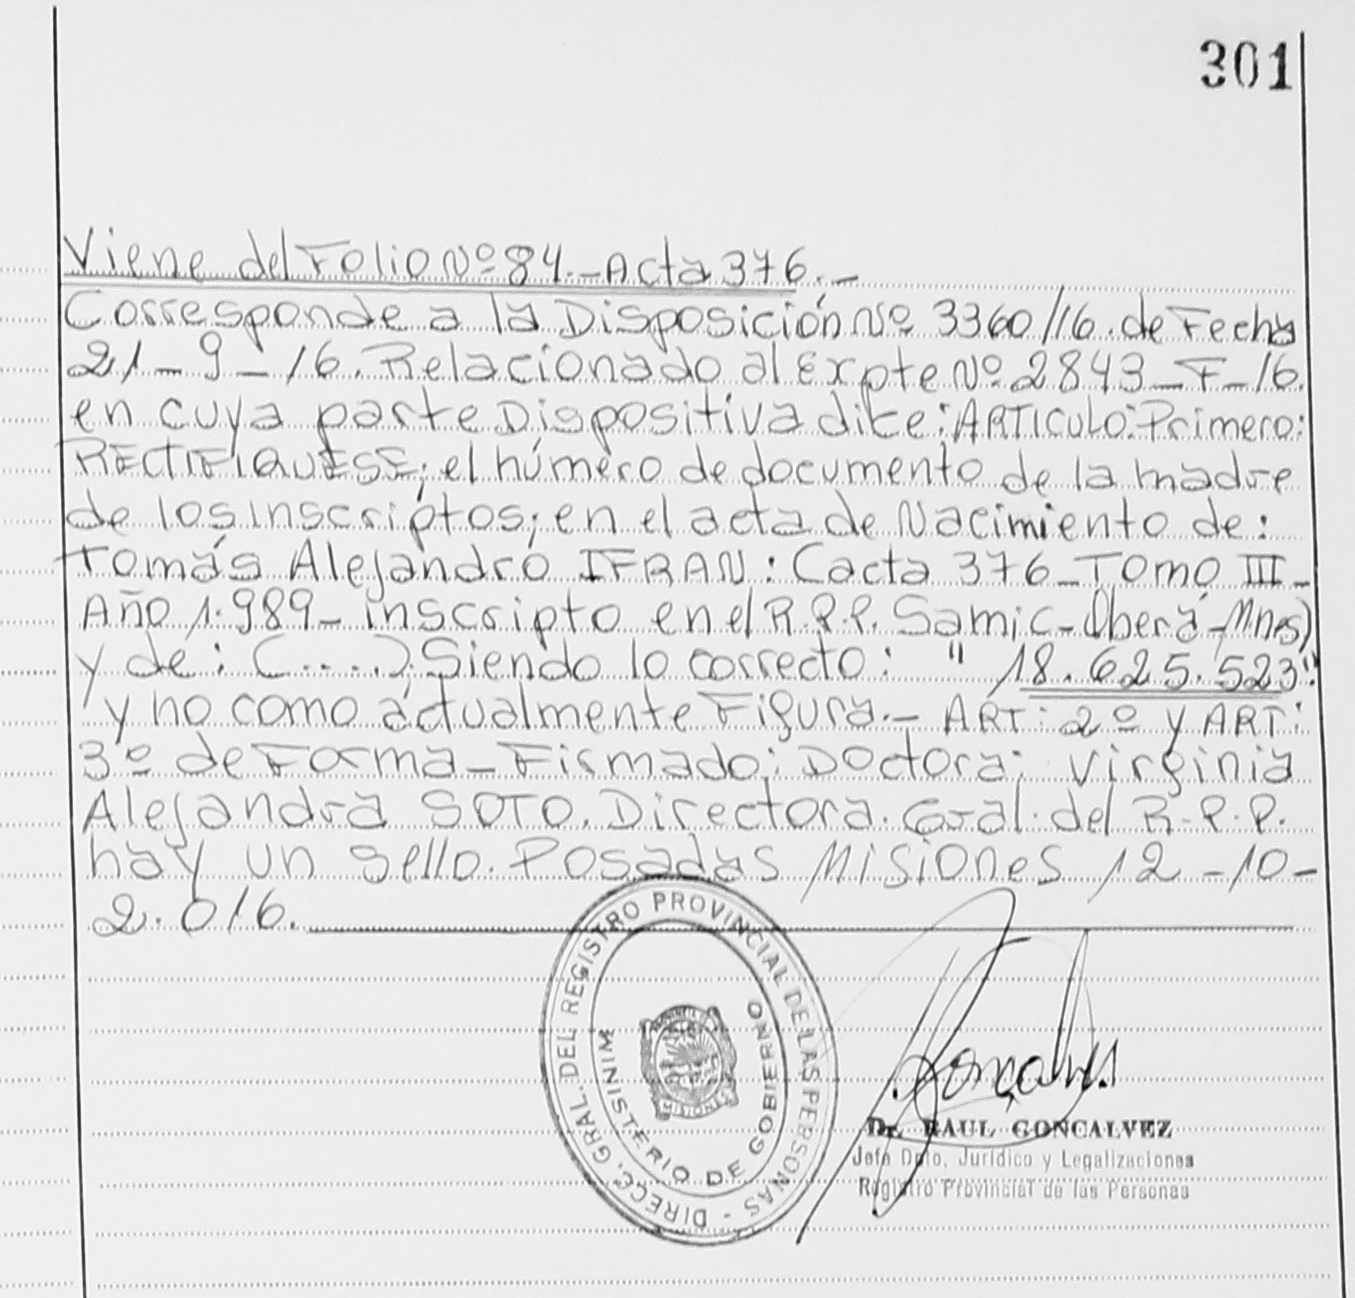 301
Viene del Folio Nº 84.-Acta 376.-
Corresponde a la Disposición Nº 3360/16. de Fecha
21-9-16. Relacionado al Expte Nº 2843-F-16.
en cuya parte Dispositiva dice: ARTICULO: Primero:
RECTIFIQUESE; el número de documento de la madre
de los inscriptos; en el acta de Nacimiento de:
Tomás Alejandro IFRAN: (acta 376-Tomo III-
Año 1.989- inscripto en el R.P.P. Samic-Oberá-Mnes)
y de: (....). Siendo lo correcto: "18.625.523"
y no como actualmente Figura.- ART: 2º y ART:
3º de Forma-Firmado; Doctora; Virginia
Alejandra SOTO. Directora. Gral. del R.P.P.
hay un sello. Posadas Misiones 12-10-
2.016.
DIRECC. GRAL. DEL REGISTRO PROVINCIAL DE LAS PERSONAS -
MINISTERIO DE GOBIERNO
MISIONES
Goncalvez
Dr. RAUL GONCALVEZ
Jefe Dpto. Jurídico y Legalizaciones
Registro Provincial de las Personas